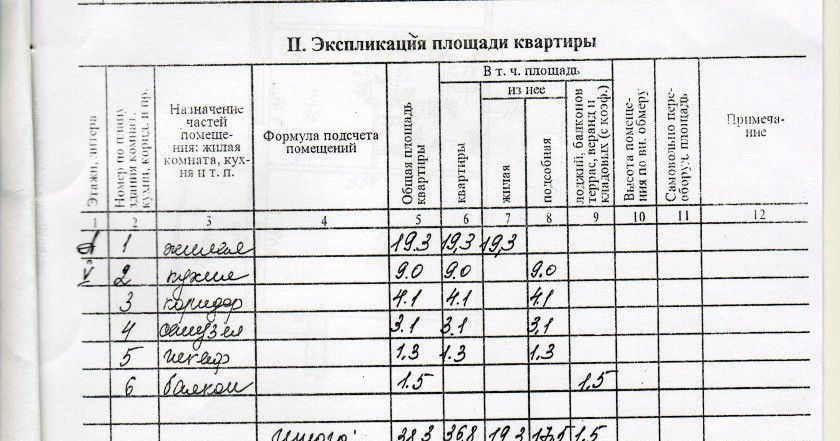 II. Экспликация площади квартиры
Этажи, литера
Номер по плану здания комнат. кухни, корид. и пр.
Назначение частей помеще- ния: жилая комната, кух- ня и т. п.
Формула подсчета помещений
Общая площадь квартиры
В т. ч. площадь
из нее
квартиры
жилая
подсобная
лоджий, балконов террас, веранд и кладовых (с коэф.)
Высота помеще- ния по вн. обмеру
Самовольно пере- оборуд. площадь
Примеча- ние
1 2 3 4 5 6 7 8 9 10 11 12
1 жилая 19.3 19,3 19,3
2 кухня 9.0 9.0 9.0
3 коридор 4.1 4.1 4.1
4 санузел 3.1 3.1 3,1
5 шкаф 1.3 1.3 1.3
6 балкон 1.5 1.5
Итого: 38.3 36.8 19.3 17.5 1.5